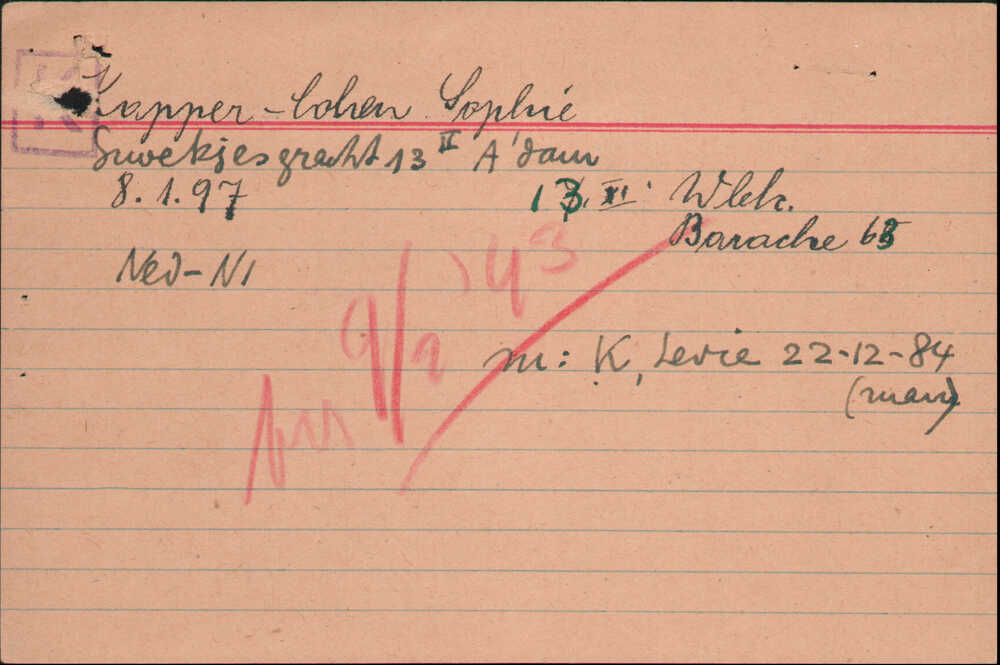 Kapper-Cohen Sophie
Snoekjesgracht 13 II A'dam
8.1.97
13. XI. Wlek.
Barache 65
Ned-Nl
9/2 '43
m: K, Levie 22-12-84
(man)